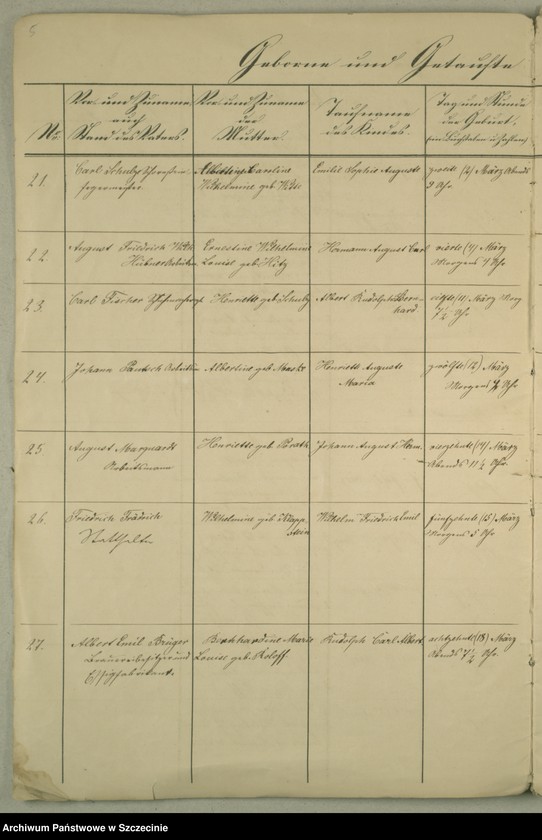 5
Geborne und Getaufte
No.
Vor- und Zuname
auch
Stand des Vaters.
Vor- und Zuname
der
Mutter.
Taufname
des Kindes.
Tag und Stunde
der Geburt.
(in Buchstaben u. Zahlen)
21.
Carl Schulz
Albertine Caroline
Wilhelmine geb.
Emilie Sophie Auguste
zweite (2) März Abends
9 Uhr
22.
August Friedrich
Ernestine Wilhelmine
Louise geb. Hitz
Hermann August Carl
vierte (4) März
Morgens 4 Uhr
23.
Carl Fischer
Henriette geb. Schulz
Albert Rudolph Bern-
hard.
elfte (11) März Morg
7½ Uhr
24.
Johann
Albertine geb.
Henriette Auguste
Maria
zwölfte (12) März
Morgens Uhr
25.
August Marquardt
Arbeitsmann
Henriette geb. Brath
Johann August Herm.
vierzehnte (14) März
Abends 11½ Uhr.
26.
Friedrich Frädrich
Statthalter
Wilhelmine geb.
Wilhelm Friedrich Emil
fünfzehnte (15) März
Morgens 5 Uhr
27.
Albert Emil Krüger
Brauereibesitzer und
Essigfabrikant.
Bernhardine Marie
Louise geb. Roloff.
Rudolph Carl Albert
achtzehnte (18) März
Abends 7½ Uhr.
Archiwum Państwowe w Szczecinie